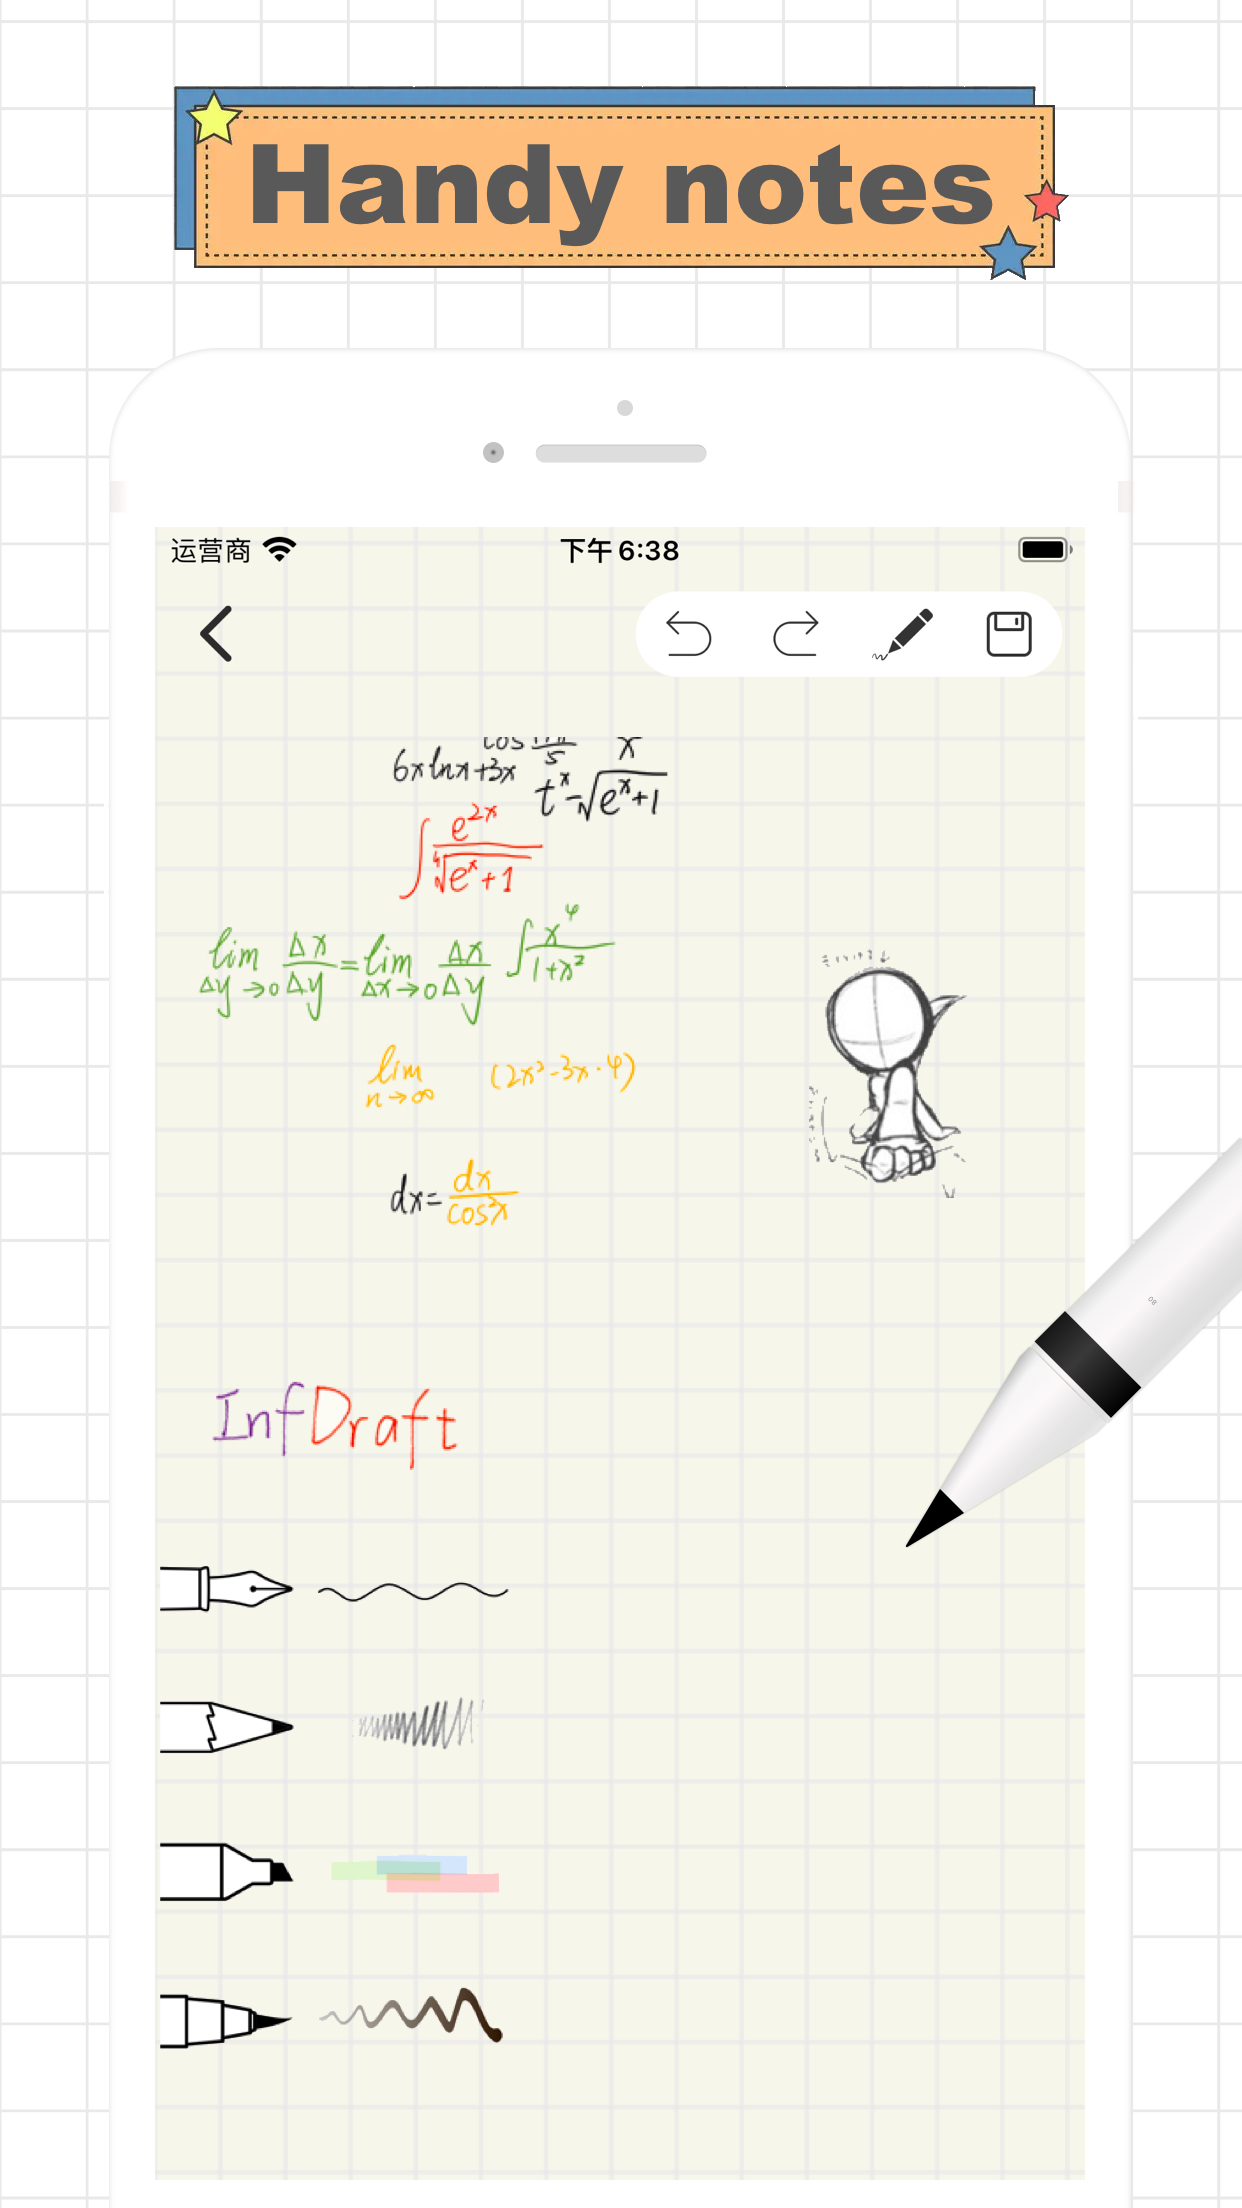 Handy notes
运营商 下午6:38
6x lnx+3x cos 5
x
t^x-√e^x+1
∫ e^2x / ∜e^x+1
lim Δy→0 Δx/Δy = lim Δx→0 Δx/Δy ∫ x^4 / 1+x²
lim n→∞ (2x³-3x·4)
dx= dx/cos²x
InfDraft